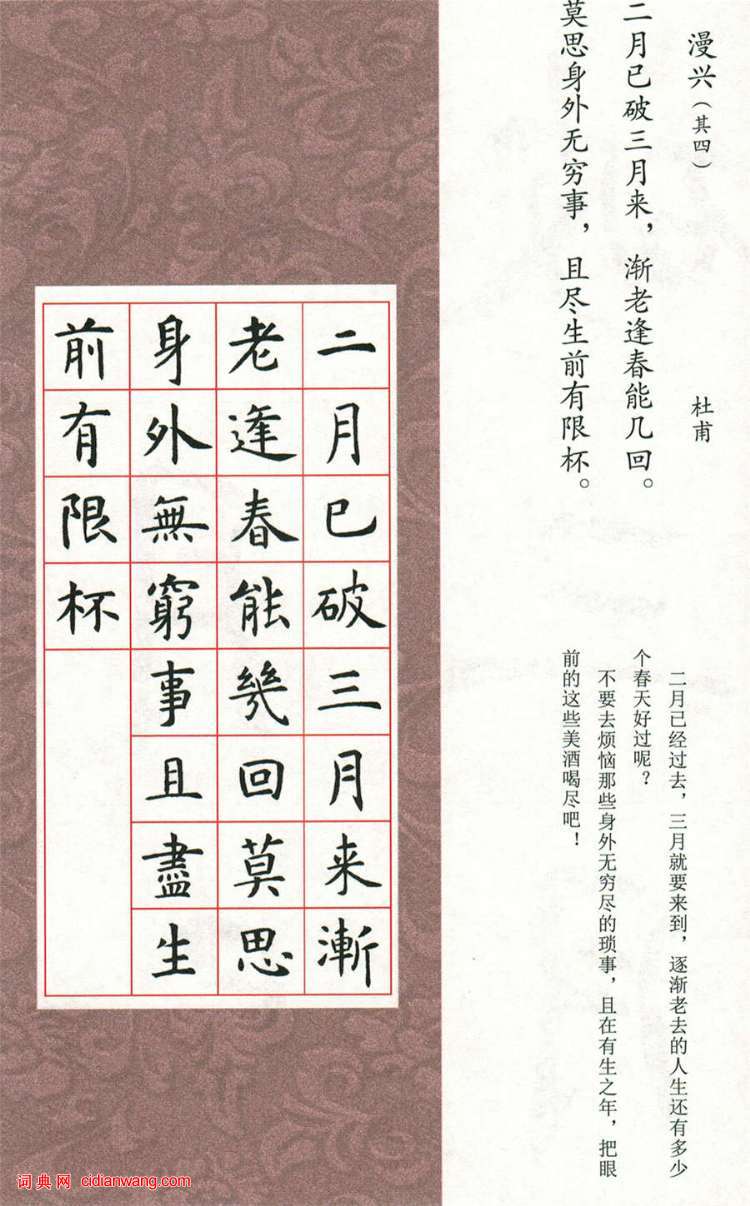 漫兴（其四）
杜甫
二月已破三月来，渐老逢春能几回。
莫思身外无穷事，且尽生前有限杯。
二月已经过去，三月就要来到，逐渐老去的人生还有多少
个春天好过呢？
不要去烦恼那些身外无穷尽的琐事，且在有生之年，把眼
前的这些美酒喝尽吧！
二月已破三月来漸
老逢春能幾回莫思
身外無窮事且盡生
前有限杯
词典网 cidianwang.com